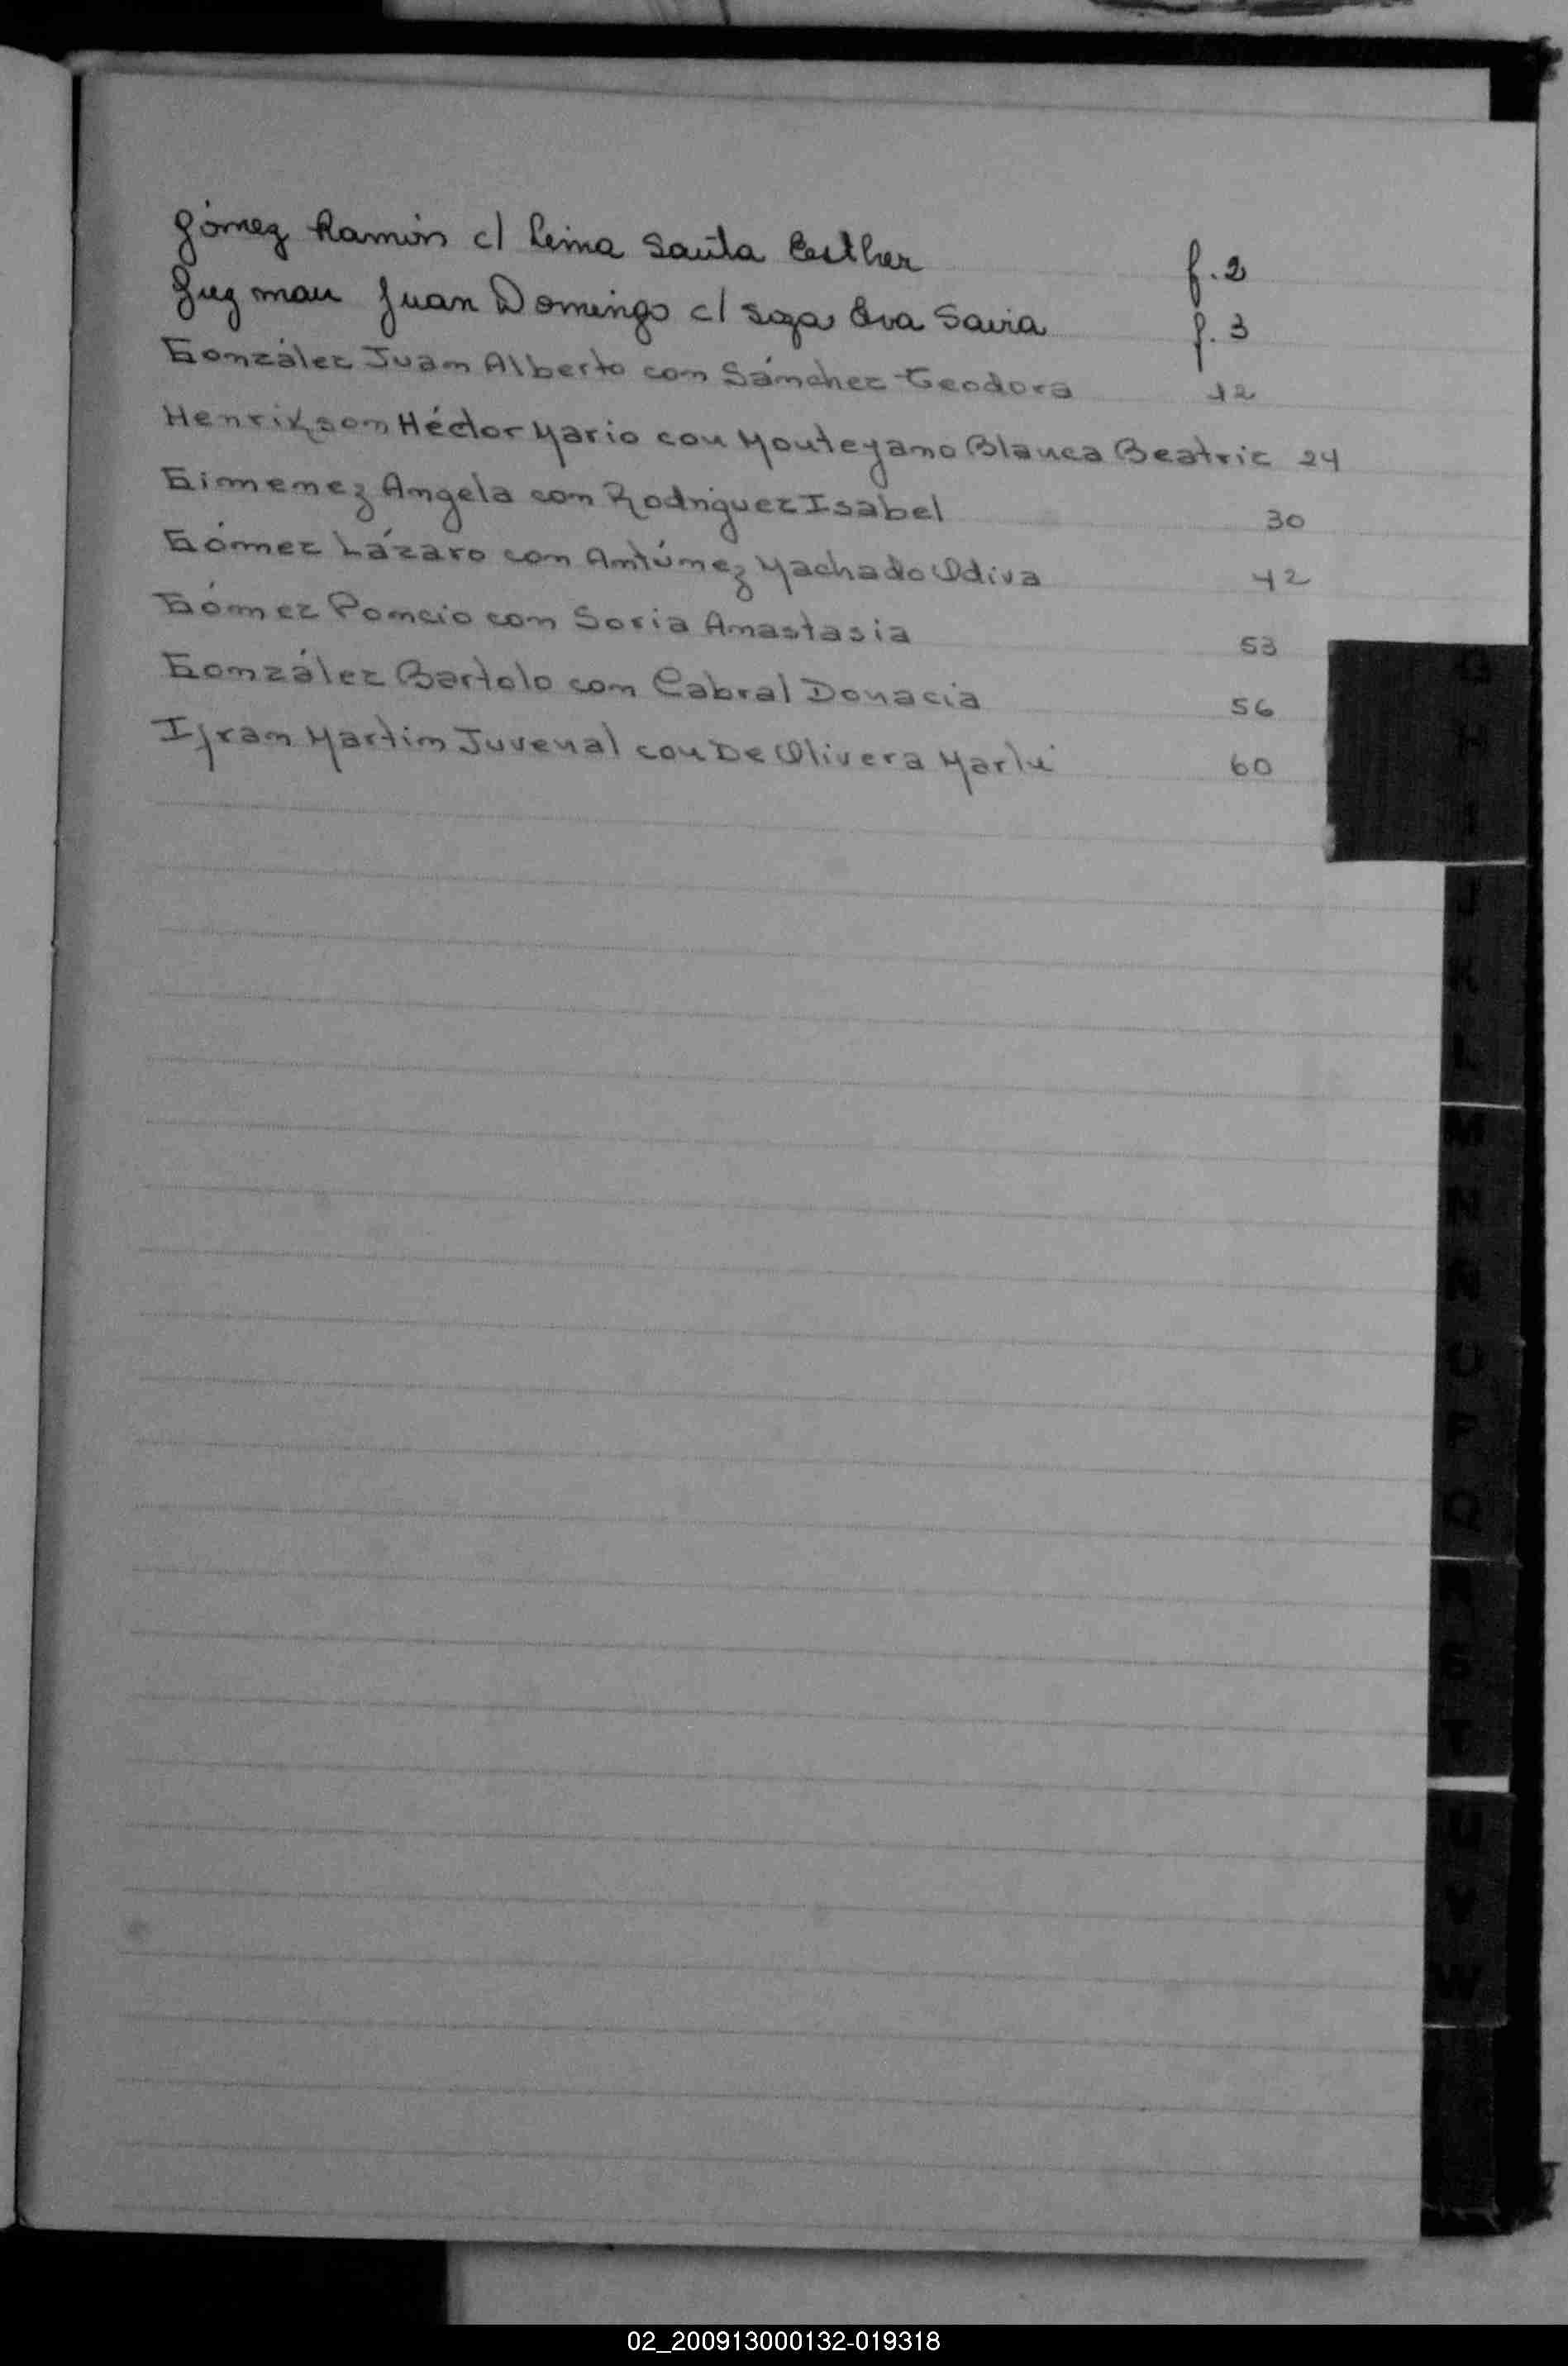 Gómez Ramón c/ Leina Santa Esther f. 2
Guzman Juan Domingo c/ Soza Eva Savia f. 3
González Juan Alberto con Sánchez Teodora 12
Henrikson Héctor Mario con Monteyano Blanca Beatriz 24
Gimenez Angela con Rodriguez Isabel 30
Gómez Lázaro con Antúnez Machado Odiva 42
Gómez Poncio con Soria Anastasia 53
González Bartolo con Cabral Donacia 56
G
H
I
Ifran Martin Juvenal con De Olivera Marlú 60
J
K
L
M
N
Ñ
O
P
Q
R
S
T
U
V
W
02_200913000132-019318